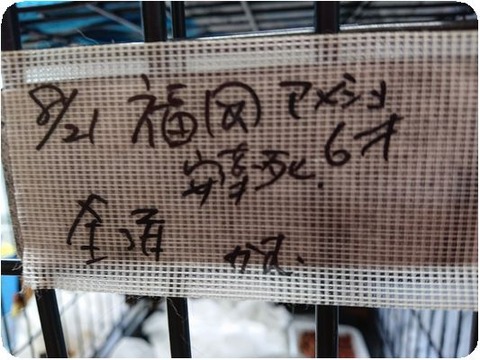 8/21 福岡 アメショ
安楽死 6才
全頭